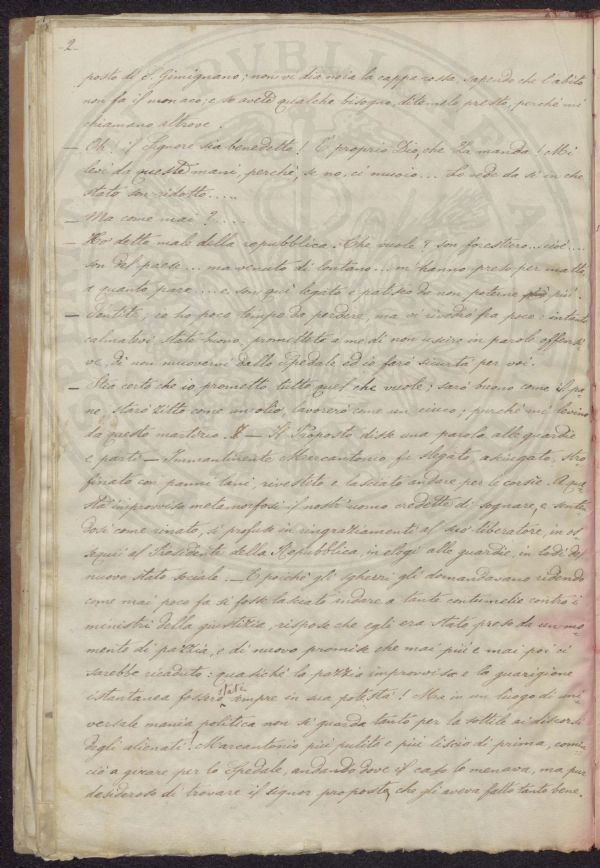 2
posto di S. Gimignano; non vi dia noia la cappa rossa, sapendo che l'abito
non fa il monaco; e se avete qualche bisogno, ditemelo presto, perchè mi
chiamano altrove.
— Oh! il Signore sia benedetto! È proprio Dio, che La manda! Mi
levi da queste mani, perchè, se no, ci muoio... Lo vede da sì in che
stato son ridotto.....
— Ma come mai?.....
— Ho detto male della repubblica. Che vuole? son forestiero... cioè...
son del paese... ma venuto di lontano... m'hanno preso per matto,
a quanto pare... e son qui legato e patisco da non poterne più.
— Sentite, io ho poco tempo da perdere, ma vi rivedrò fra poco: intanto
calmatevi, state buono, promettete a me di non uscire in parole offensi-
ve, di non muovervi dallo Spedale ed io farò sicurtà per voi.
— Stia certo che io prometto tutto quel che vuole; sarò buono come il pa-
ne, starò zitto come un olio, lavorerò come un ciuco; purchè mi levino
da questo martirio. — Il Proposto disse una parola alle guardie
e partì — Immantinente Marcantonio fu slegato, asciugato, stro-
finato con panni lani, rivestito e lasciato andare per le corsie. A que-
sta improvvisa metamorfosi il nostr'uomo credette di sognare, e senten-
dosi come rinato, si profuse in ringraziamenti al suo liberatore, in os-
sequi al Presidente della Repubblica, in elogi alle guardie, in lodi del
nuovo stato sociale. — E poichè gli sgherri gli domandavano ridendo
come mai poco fa si fosse lasciato andare a tante contumelie contro i
ministri della giustizia, rispose che egli era stato preso da un mo-
mento di pazzia, e di nuovo promise che mai più e mai poi ci
sarebbe ricaduto: quasichè la pazzia improvvisa e la guarigione
istantanea fossero state sempre in sua potestà! Ma in un luogo di uni-
versale mania politica non si guarda tanto per la sottile ai discorsi
degli alienati! Marcantonio più pulito e più liscio di prima, comin-
ciò a girare per lo Spedale, andando dove il caso lo menava, ma pur
desideroso di trovare il signor proposto, che gli aveva fatto tanto bene.